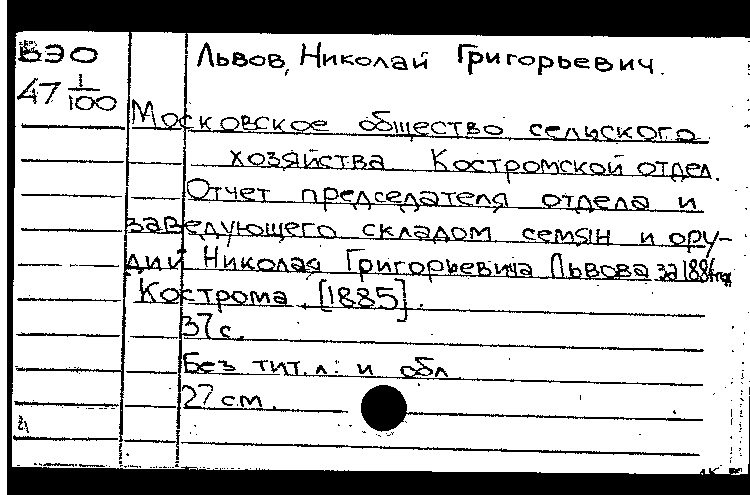 ВЭО
47 1/100
Львов, Николай Григорьевич.
Московское общество сельского
хозяйства Костромской отдел.
Отчет председателя отдела и
заведующего складом семян и ору-
дий Николая Григорьевича Львова за 1884 год
Кострома, [1885].
37 с.
Без тит. л. и обл
27 см.